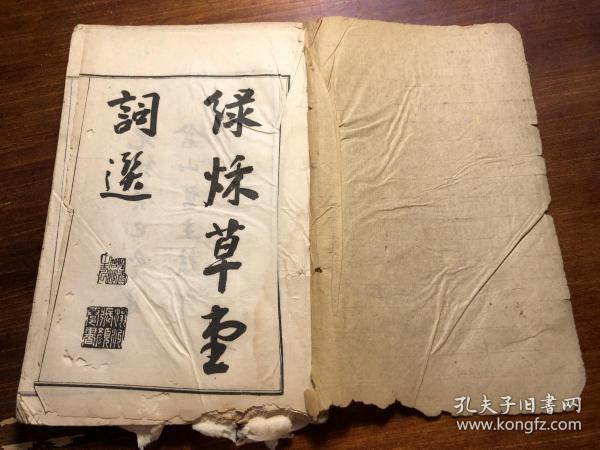 绿秌草堂
詞選
孔夫子旧书网
www.kongfz.com